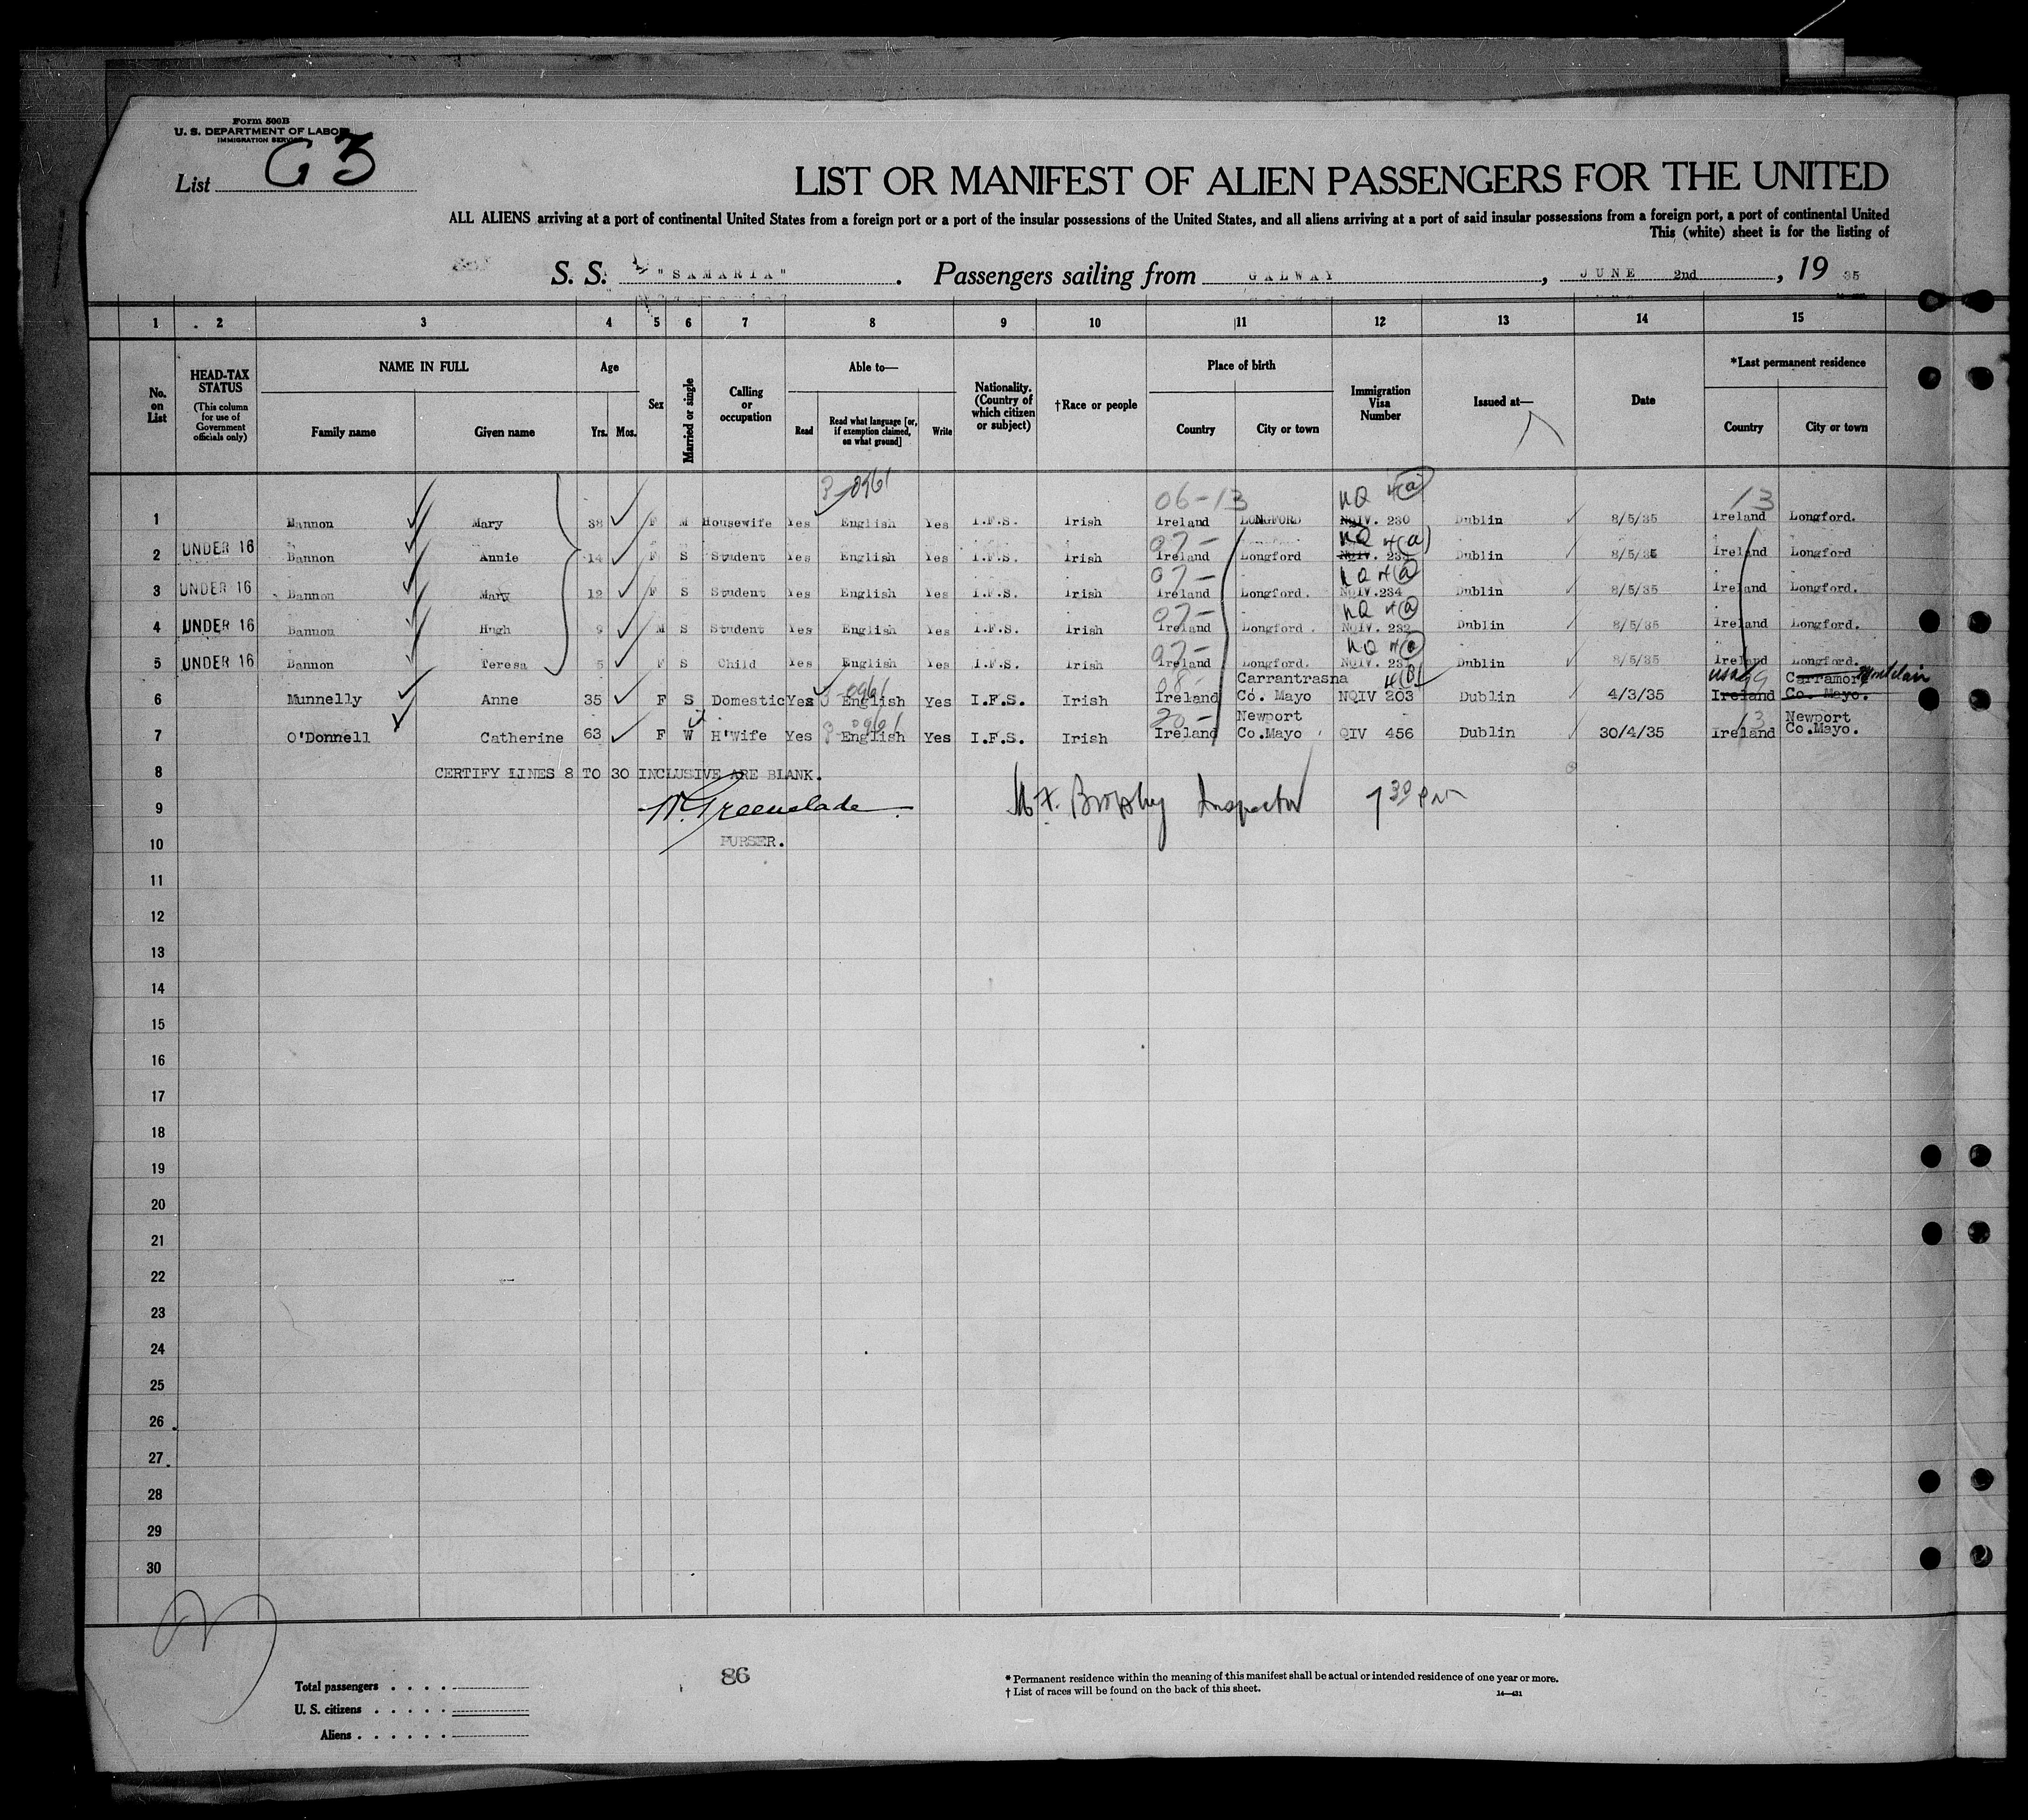 Form 500B
U. S. DEPARTMENT OF LABOR
IMMIGRATION SERVICE
List G3
LIST OR MANIFEST OF ALIEN PASSENGERS FOR THE UNITED
ALL ALIENS arriving at a port of continental United States from a foreign port or a port of the insular possessions of the United States, and all aliens arriving at a port of said insular possessions from a foreign port, a port of continental United
This (white) sheet is for the listing of
S. S. "SAMARIA". Passengers sailing from GALWAY, JUNE 2nd, 19 35
1 2 3 4 5 6 7 8 9 10 11 12 13 14 15
No. on List
HEAD-TAX STATUS (This column for use of Government officials only)
NAME IN FULL Family name Given name
Age Yrs. Mos.
Sex
Married or single
Calling or occupation
Able to— Read Read what language [or, if exemption claimed, on what ground] Write
Nationality. (Country of which citizen or subject)
†Race or people
Place of birth Country City or town
Immigration Visa Number
Issued at—
Date
*Last permanent residence Country City or town
0961 06-13 NQ 4(a) 13
1 Bannon Mary 38 F M Housewife Yes English Yes I.F.S. Irish Ireland LONGFORD NQIV. 230 Dublin 8/5/35 Ireland Longford.
07- NQ 4(a)
2 UNDER 16 Bannon Annie 14 F S Student Yes English Yes I.F.S. Irish Ireland Longford NQIV. Dublin 8/5/35 Ireland Longford
07- NQ 4(a)
3 UNDER 16 Bannon Mary 12 F S Student Yes English Yes I.F.S. Irish Ireland Longford. NQIV.234 Dublin 8/5/35 Ireland Longford.
07- NQ 4(a)
4 UNDER 16 Bannon Hugh 9 M S Student Yes English Yes I.F.S. Irish Ireland Longford. NQIV. 232 Dublin 8/5/35 Ireland Longford.
07- NQ 4(a)
5 UNDER 16 Bannon Teresa 5 F S Child Yes English Yes I.F.S. Irish Ireland Longford. NQIV. Dublin 8/5/35 Ireland Longford.
0961 08- Carrantrasna USA 99 Montclair
6 Munnelly Anne 35 F S Domestic Yes English Yes I.F.S. Irish Ireland Co. Mayo NQIV 203 Dublin 4/3/35 Ireland Co. Mayo.
0961 20- Newport 13 Newport
7 O'Donnell Catherine 63 F W H'Wife Yes English Yes I.F.S. Irish Ireland Co.Mayo QIV 456 Dublin 30/4/35 Ireland Co.Mayo.
8 CERTIFY LINES 8 TO 30 INCLUSIVE ARE BLANK.
9 Inspector 7 30 PM
10 PURSER.
11
12
13
14
15
16
17
18
19
20
21
22
23
24
25
26
27
28
29
30
Total passengers
U. S. citizens
Aliens
86
* Permanent residence within the meaning of this manifest shall be actual or intended residence of one year or more.
† List of races will be found on the back of this sheet.
14—431